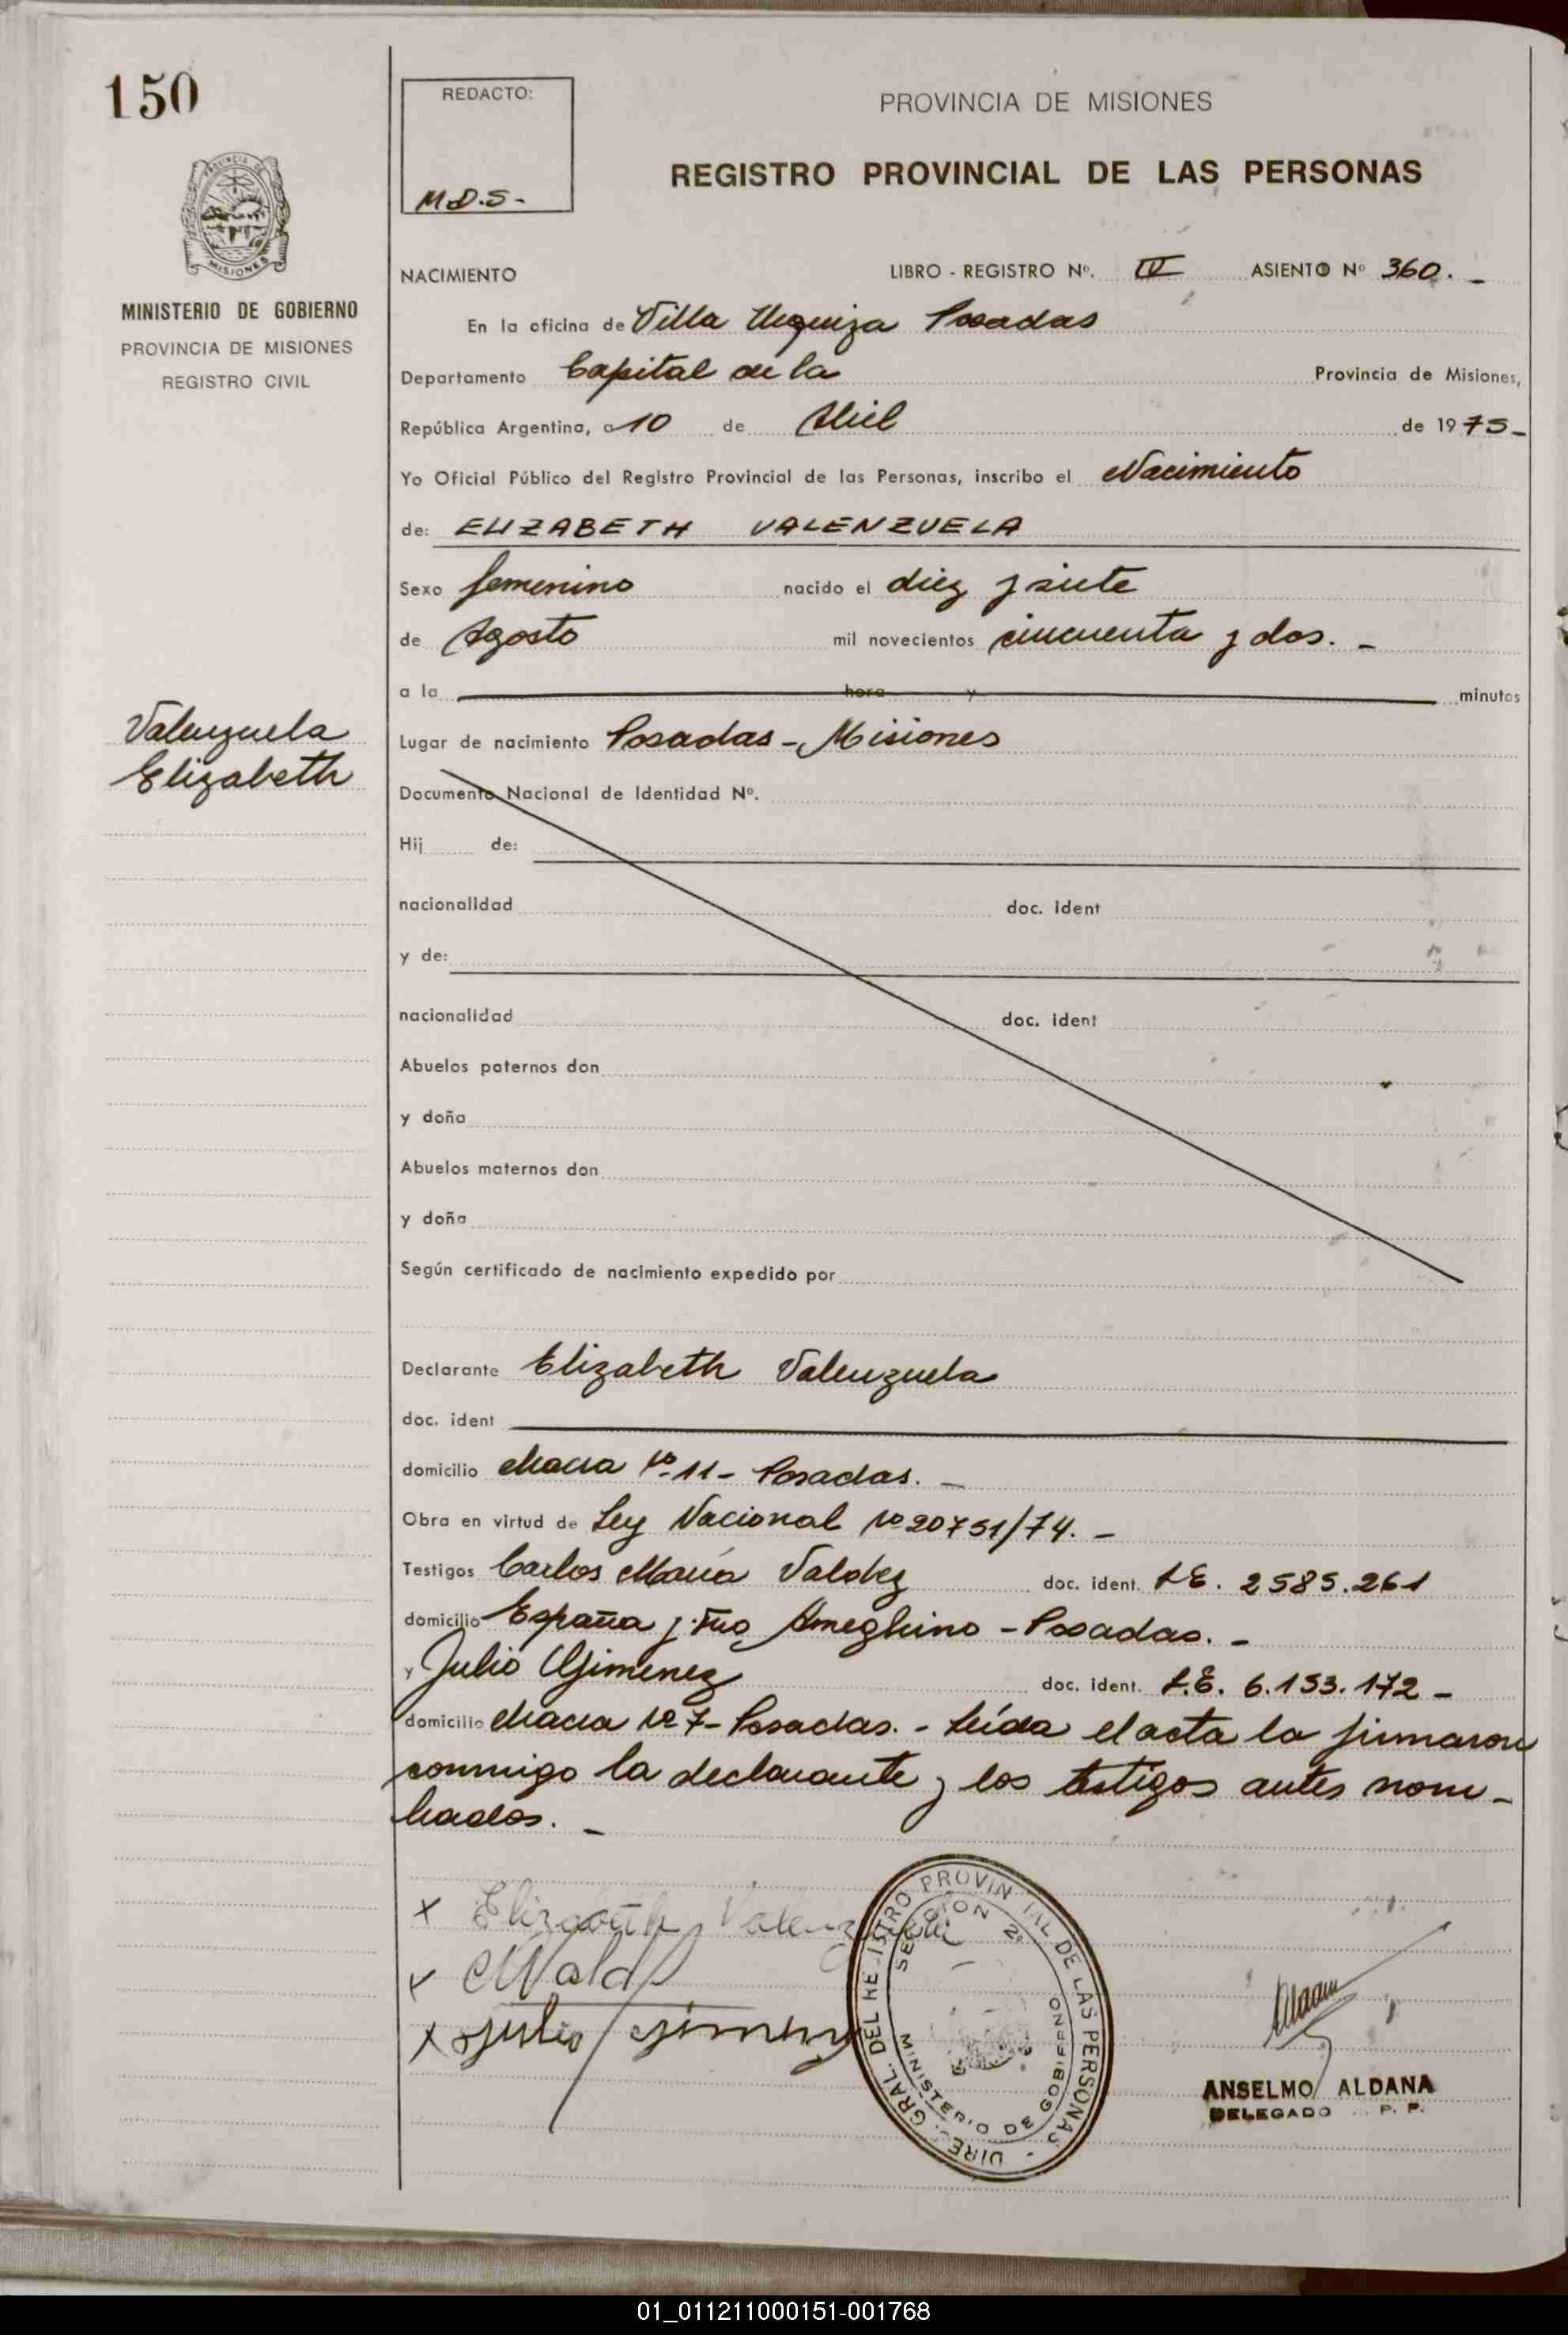 150
REDACTO:
M.D.S-
PROVINCIA DE MISIONES
REGISTRO PROVINCIAL DE LAS PERSONAS
PROVINCIA D
MISIONES
MINISTERIO DE GOBIERNO
PROVINCIA DE MISIONES
REGISTRO CIVIL
NACIMIENTO LIBRO - REGISTRO Nº. IV ASIENTO Nº 360. -
En la oficina de Villa Urquiza Posadas
Departamento Capital de la Provincia de Misiones,
República Argentina, a 10 de Abril de 1975-
Yo Oficial Público del Registro Provincial de las Personas, inscribo el Nacimiento
de: ELIZABETH VALENZUELA
Sexo femenino nacido el diez y siete
de Agosto mil novecientos cincuenta y dos. -
a la hora y minutos
Valenzuela
Elizabeth
Lugar de nacimiento Posadas - Misiones
Documento Nacional de Identidad Nº.
Hij de:
nacionalidad doc. ident
y de:
nacionalidad doc. ident
Abuelos paternos don
y doña
Abuelos maternos don
y doña
Según certificado de nacimiento expedido por
Declarante Elizabeth Valenzuela
doc. ident
domicilio chacra Nº 11 - Posadas. -
Obra en virtud de Ley Nacional Nº 20751/74. -
Testigos Carlos María Valdez doc. ident. L.E. 2585.261
domicilio España y Fno Ameghino - Posadas. -
y Julio Gimenez doc. ident. L.E. 6.153.172 -
domicilio chacra Nº 7 - Posadas. - Leída el acta la firmaron
conmigo la declarante y los testigos antes nom-
brados. -
x Elizabeth Valenzuela
x
x Julio Gimenez
DIRE GRAL. DEL RE ISTRO PROVIN IAL DE LAS PERSONAS
SECCION 2º
MINISTERIO DE GOBIERNO
ANSELMO ALDANA
DELEGADO P. P.
01_011211000151-001768